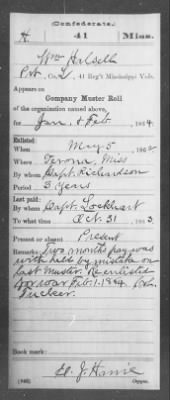 (Confederate.)
H 41 Miss.
Wm Halsell
Pvt, Co. L, 41 Reg't Mississippi Vols.
Appears on
Company Muster Roll
of the organization named above,
for Jan. & Feb, 1864.
Enlisted:
When May 5, 1862
Where Verona, Miss
By whom Capt. Richardson
Period 3 years
Last paid:
By whom Capt. Lockhart
To what time Oct. 31, 1863.
Present or absent Present
Remarks: Two months pay was
with held by mistake on
last Muster. Re enlisted
for war Feb. 1. 1864
Tucker.
Book mark:
J. Harris
(642) Copyist.